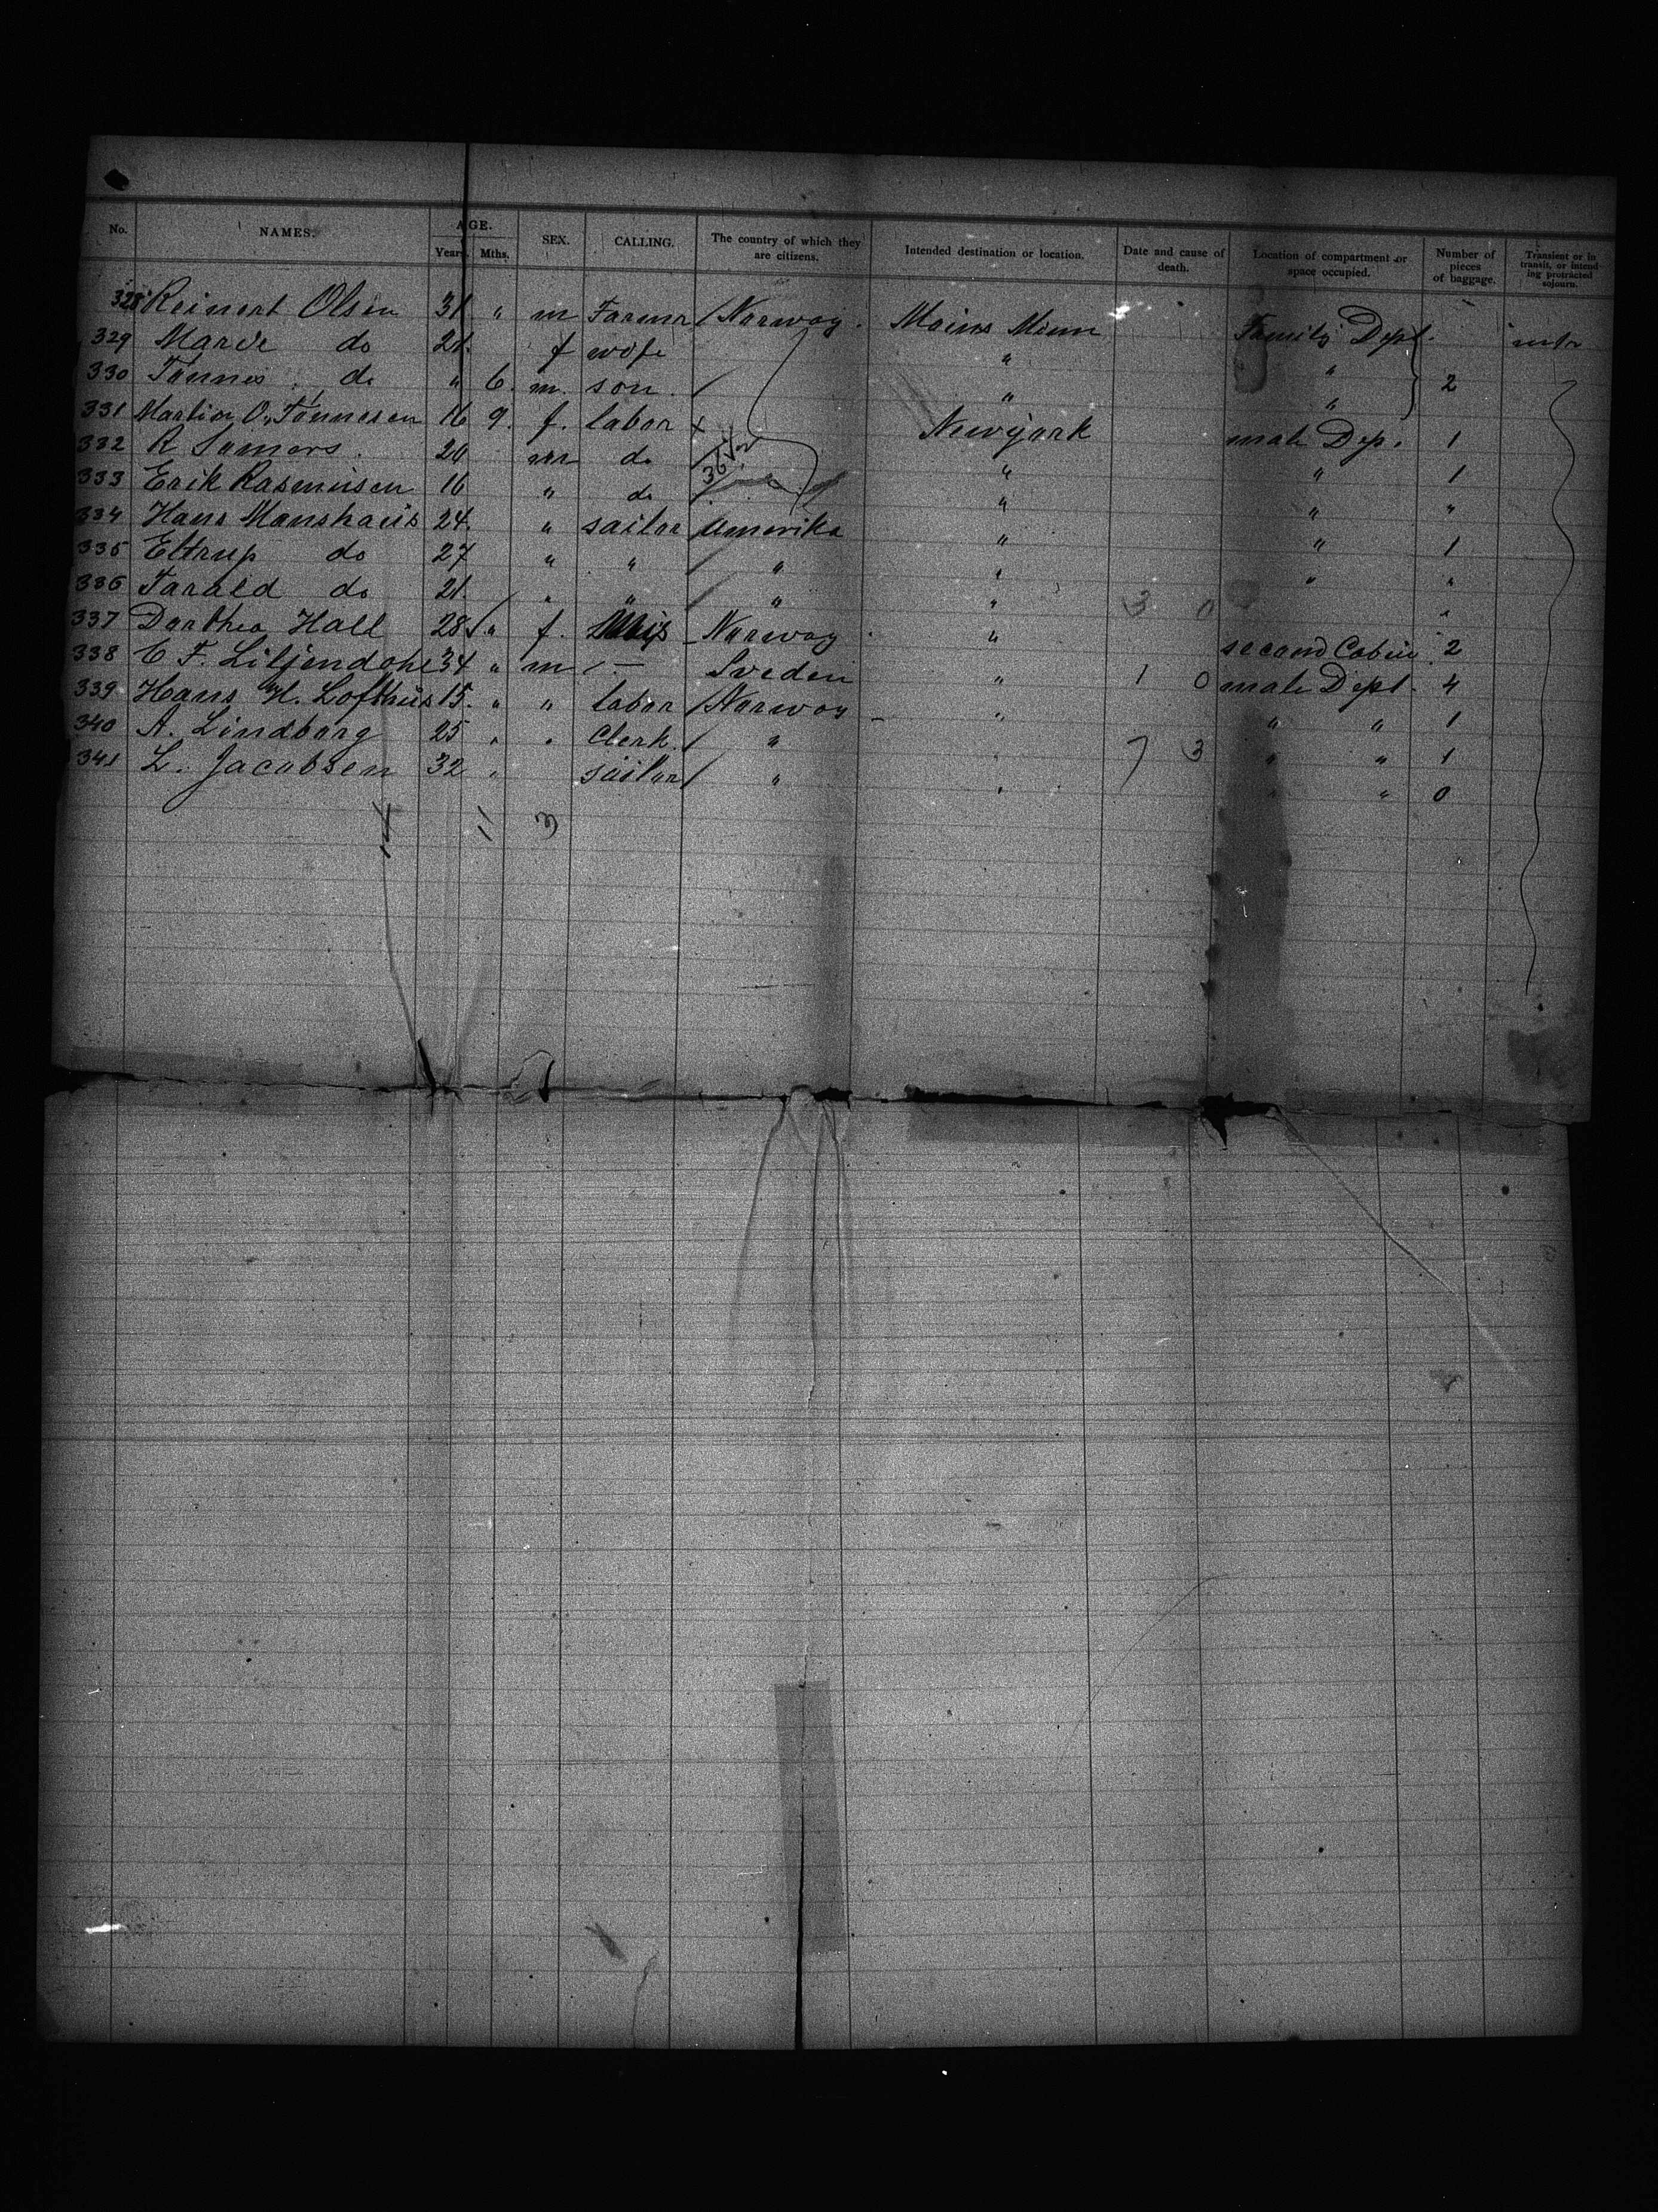 No. NAMES. AGE. Years. Mths. SEX. CALLING. The country of which they are citizens. Intended destination or location. Date and cause of death. Location of compartment or space occupied. Number of pieces of baggage. Transient or in transit, or intending protracted sojourn.
328 Reinert Olsen 31 " m Farmer / Norway. Minn Family Dept.
329 Marie do 21. f wife " "
330 Tönnes do " 6. m. son. / " " 2
331 O. Tönnesen 16 9. f. labor x Newyork male Dep. 1
332 R Somers. 20 m do " " 1
333 Erik Rasmussen 16 " do " " "
334 Hans Manshaus 24. " sailor Amerika " " 1
335 Eltrup do 27 " " / " " " "
336 Tarald do 21. " " / " " 3 0 "
337 Dorthea Hall 28 " f. Norway " second Cabin 2
338 C F. Liljendahl 34 " m - Sveden " 1 0 male Dept. 4
339 Hans H. Lofthus 15. " " labor / Norway " " " 1
340 A. Lindborg 25 " " Clerk / " " 7 3 " " 1
341 L. Jacobsen 32 " sailor / " " " " 0
14 11 3